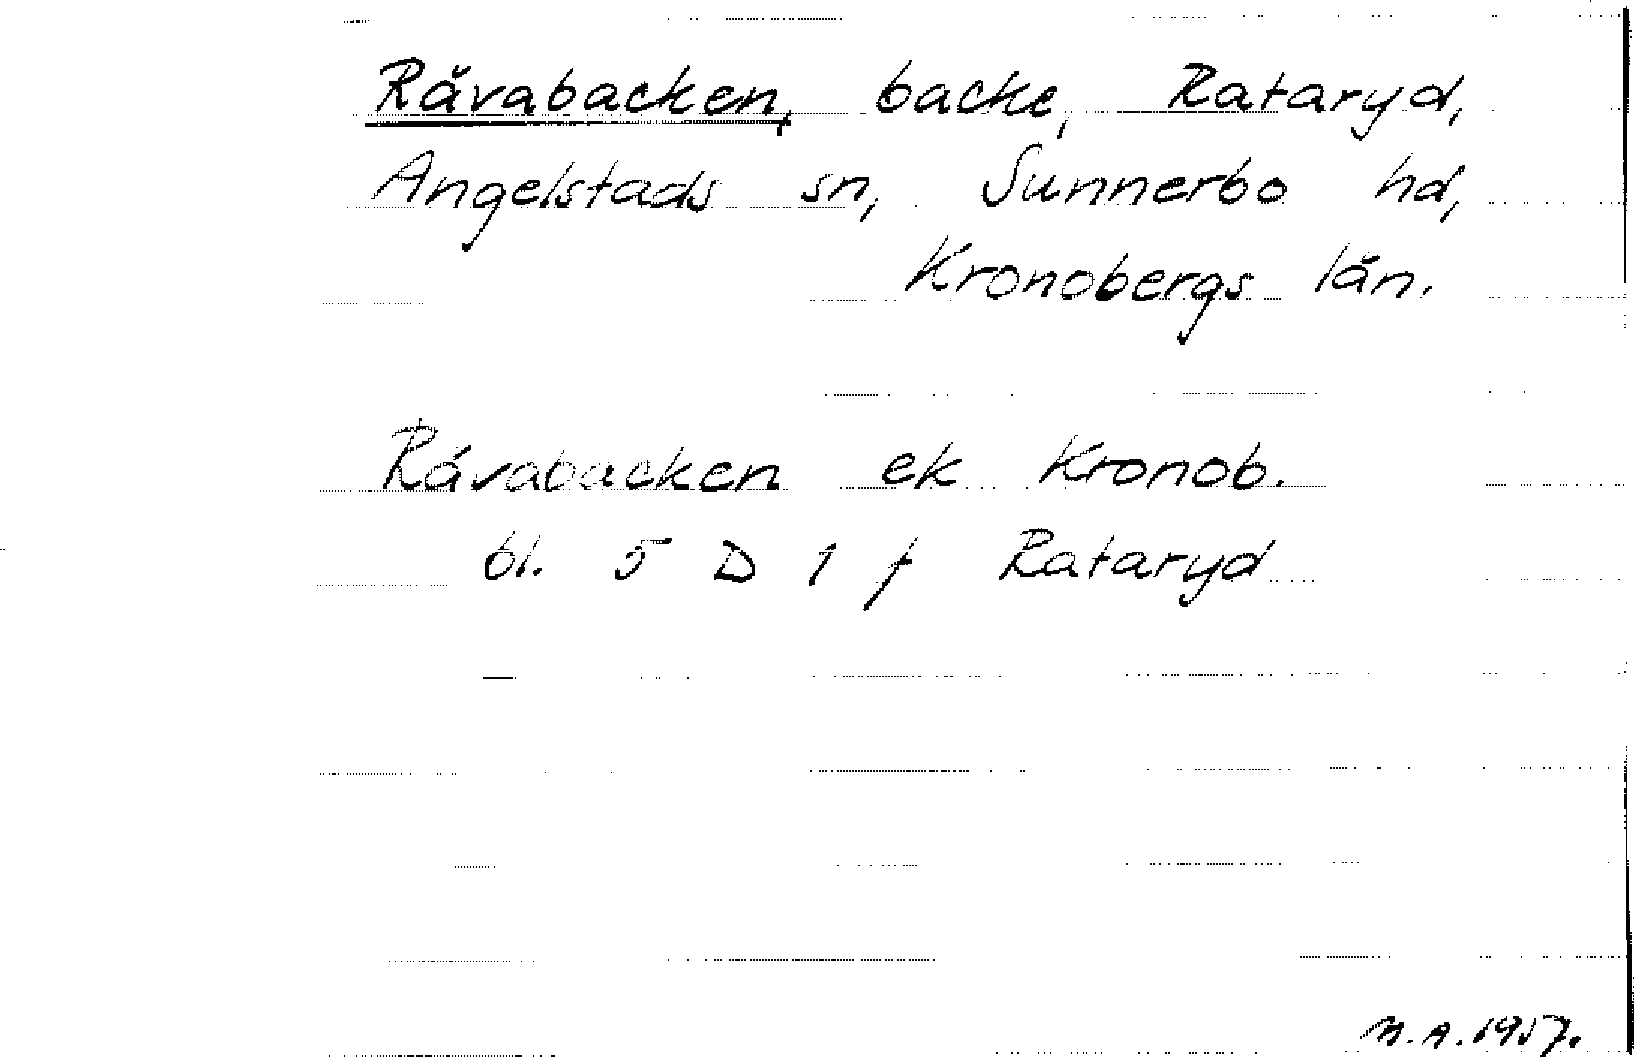 Rävabacken, backe, Rataryd,
Angelstads sn, Sunnerbo hd,
Kronobergs län.
Rävabacken ek Kronob.
bl. 5 D 1 f Rataryd
N.A. 1957.